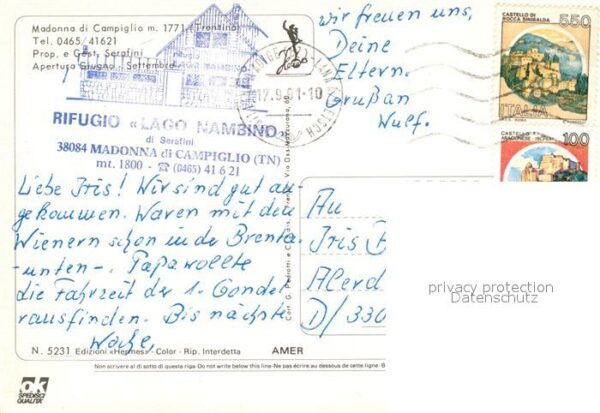 Madonna di Campiglio m. 1771 (Trentino)
Tel. 0465/41621
Prop. e Gest. Serafini
Apertura Giugno - Settembre
RIFUGIO «LAGO NAMBINO»
di Serafini
38084 MADONNA di CAMPIGLIO (TN)
mt. 1800 - ☎ (0465) 41 6 21
Liebe Iris! Wir sind gut an-
gekommen. Waren mit den
Wienern schon in de Brenta
unten-. Papa wollte
die Fahrzeit der 1. Gondel
rausfinden. Bis nächste
Woche,
wir freuen uns,
Deine
Eltern.
Gruß an
Wulf.
12.9.91-10
CASTELLO DI
ROCCA SINIBALDA
550
ITALIA
CASTELLO
ARAGONESE - ISCHIA
100
An
Iris B
Alerd
D/330
privacy protection
Datenschutz
Cart. G. Pedrotti e C.
N. 5231 Edizioni «Hermes» - Color - Rip. Interdetta
AMER
Non scrivere al di sotto di questa riga-Do not write below this line-Ne pas écrire au dessous de cette ligne-B
ok
SPEDISCI
QUALITÀ